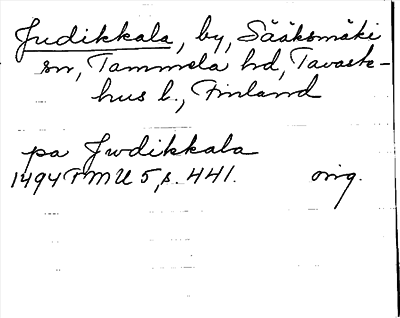 Judikkala, by, Sääksmäki
sn, Tammela hd, Tavaste-
hus l., Finland
pa Jwdikkala
1494 FMU 5, s. 441. orig.